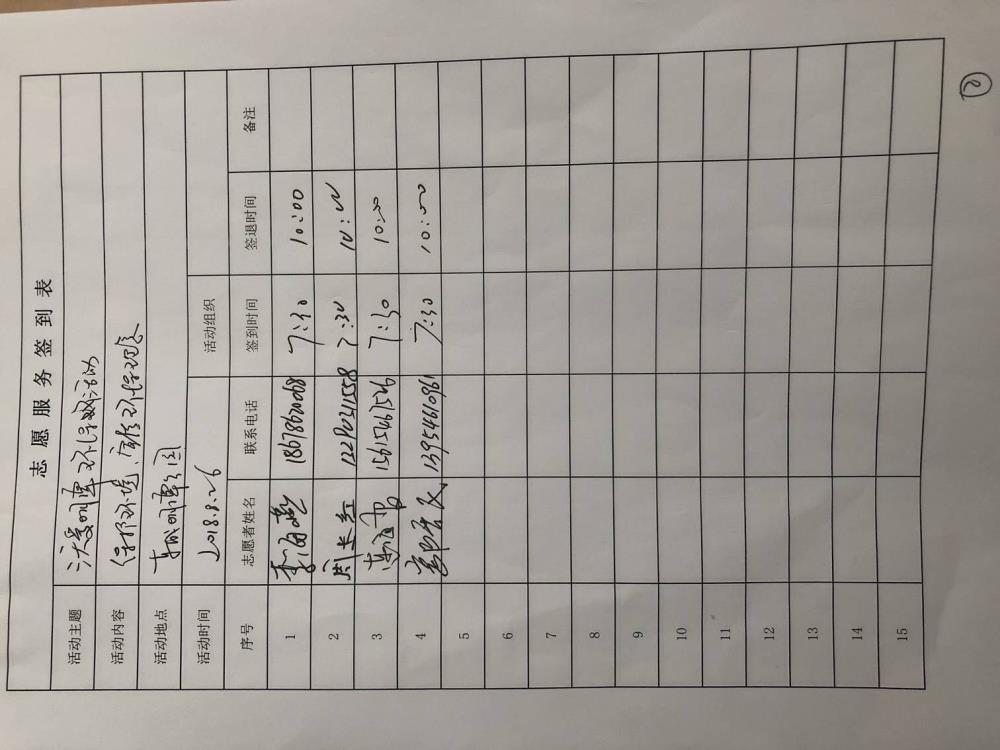 志愿服务签到表
活动主题
活动内容 保护环境、宣传环保理念
活动地点
活动时间 2018.8.26 活动组织
序号 志愿者姓名 联系电话 签到时间 签退时间 备注
1 18678620068 7:30 10:00
2 周长红 13290241558 7:30 10:00
3 15615467526 7:30 10:00
4 13954610961 7:30 10:00
5
6
7
8
9
10
11
12
13
14
15
2